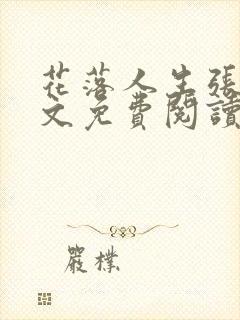 花落人生張
文免費閱讀
嚴樸